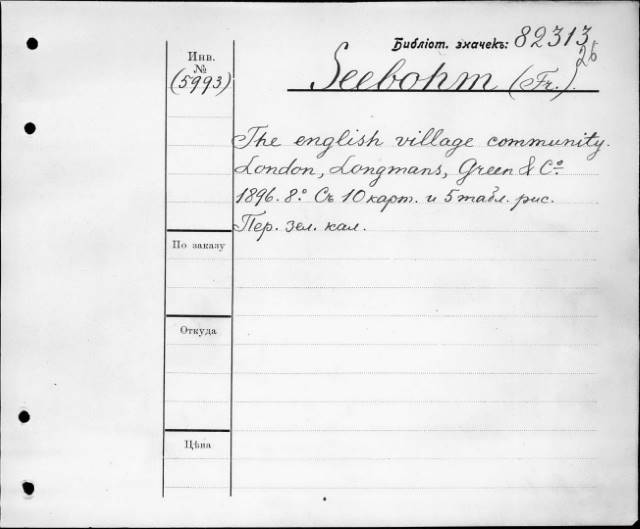 Библіот. значекъ: 82313
26
Инв.
№
(5993)
Seebohm (Fr.).
The english village community.
London, Longmans, Green & Cº
1896. 8.º Съ 10 карт. и 5 табл. рис.
Пер. зел. кал.
По заказу
Откуда
Цѣна